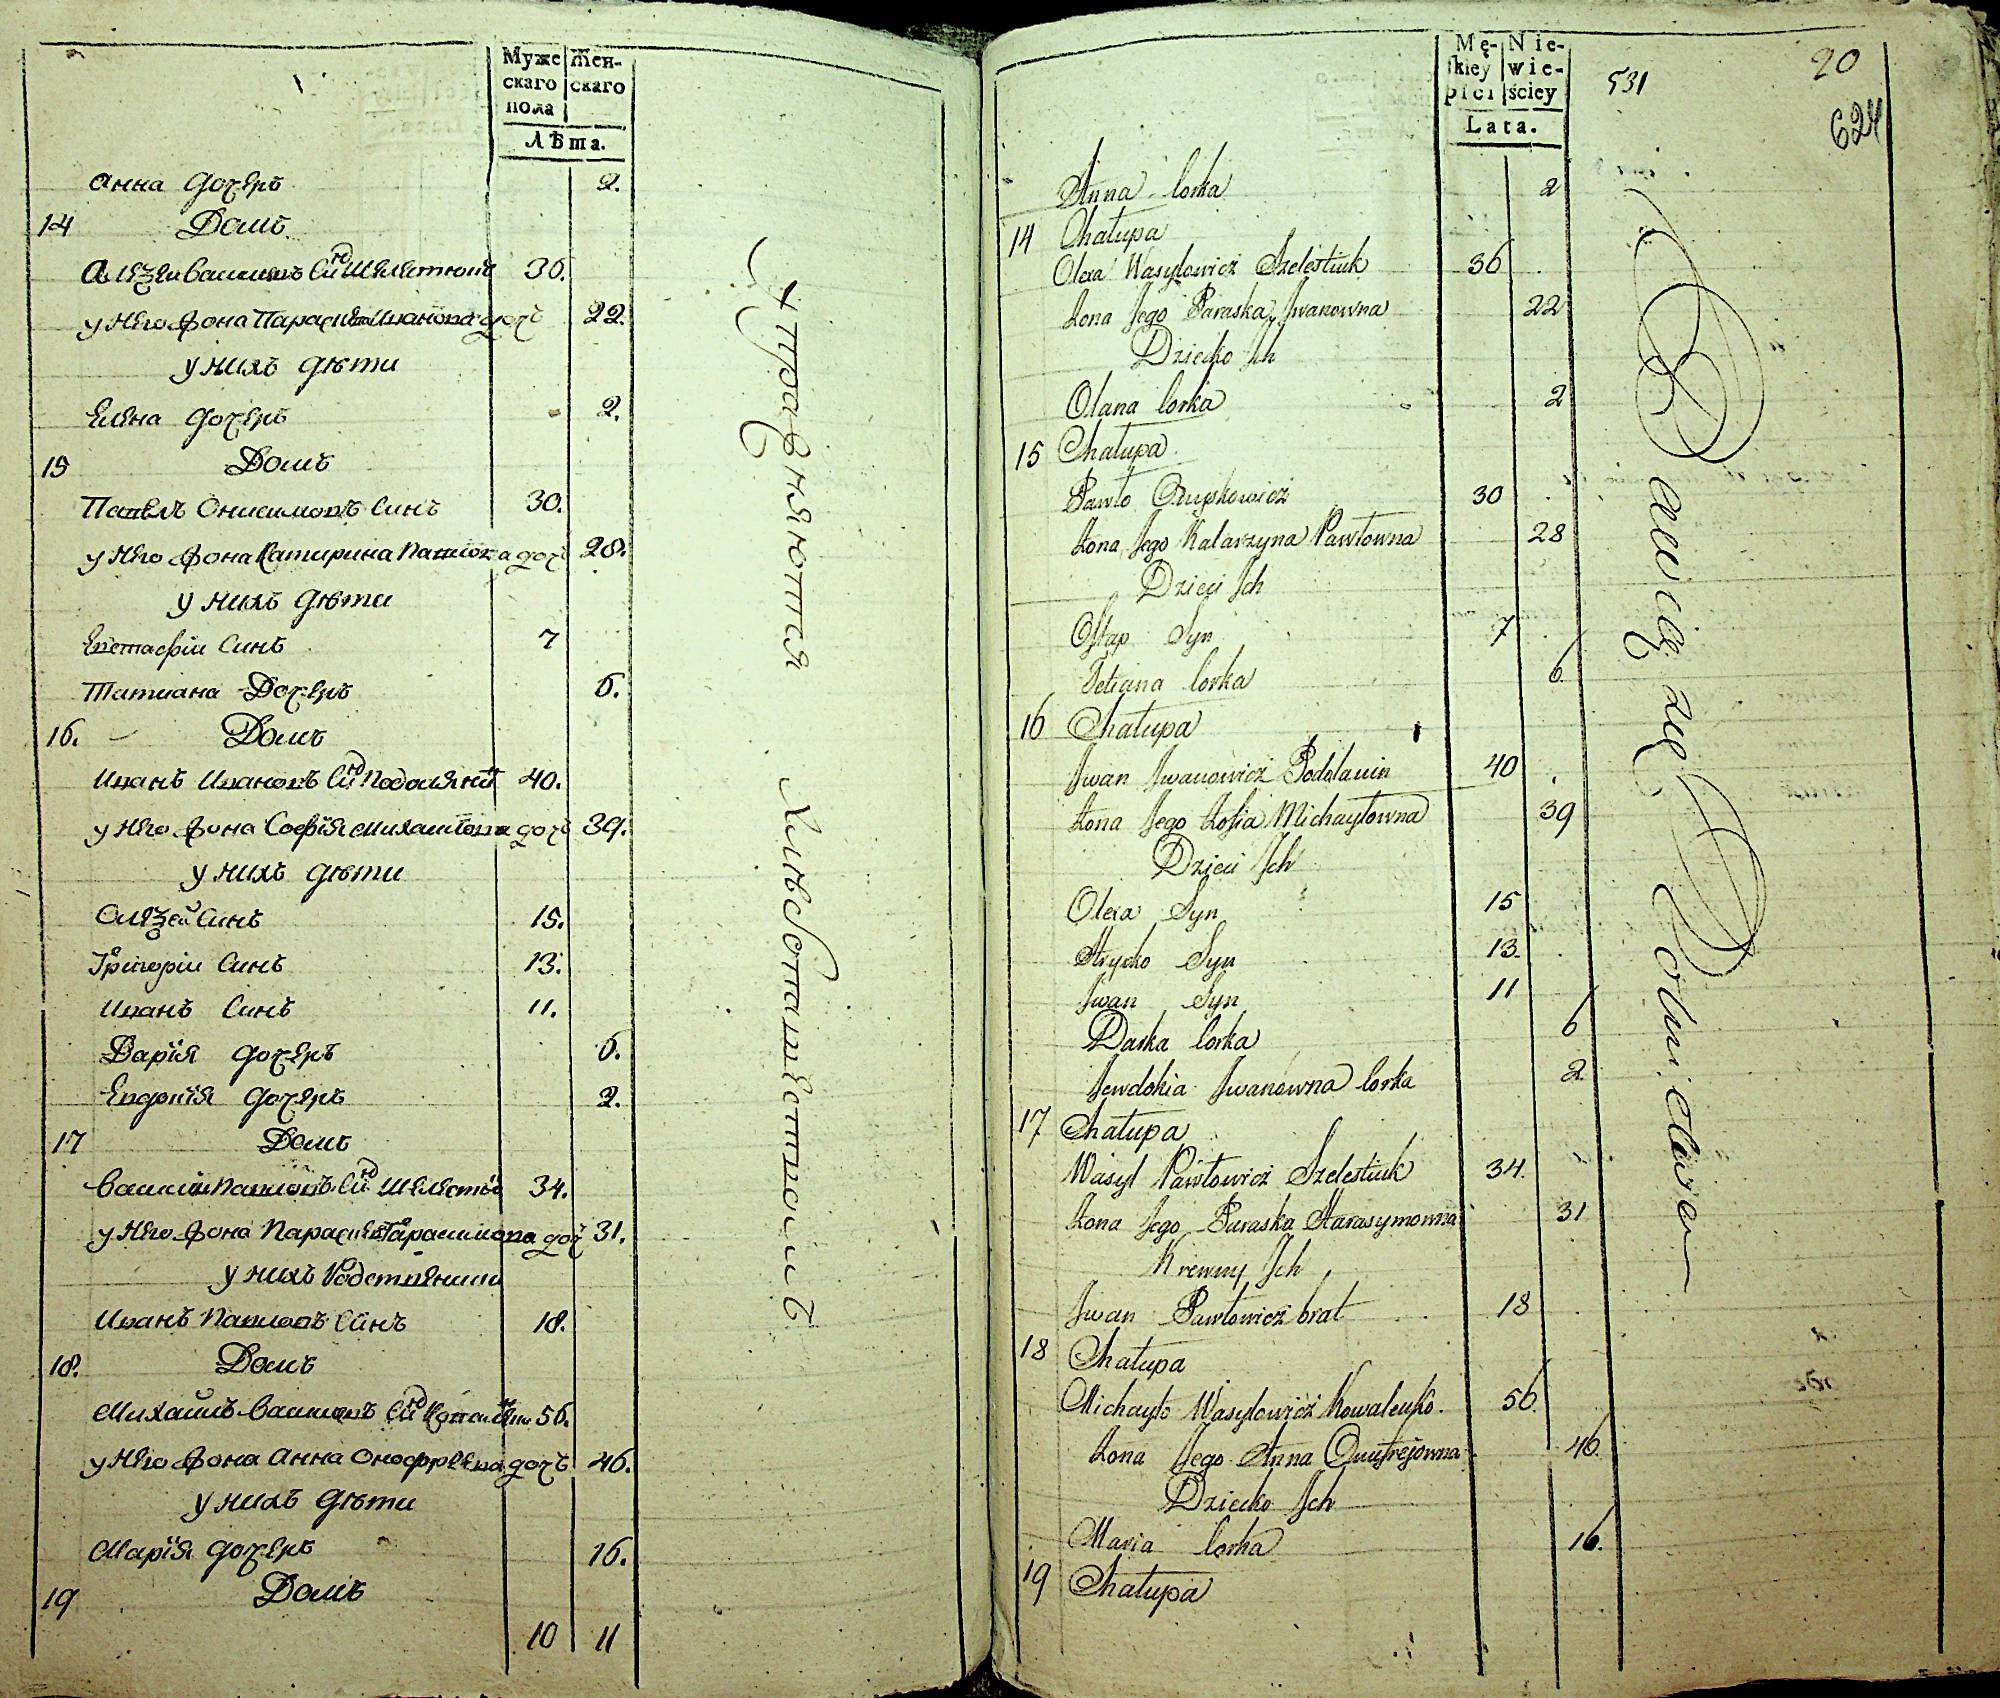 Муже скаго пола
Жен- скаго
Лѣта.
Анна дочерь 2.
14 Домъ
Алеѯей Василевъ Сиⷩ Шелестюкъ 36.
у Него жона Параскева Иванова дочь 22.
у нихъ дѣти
Елена дочерь 2.
15 Домъ
Павелъ Онисимовъ Синъ 30.
у Него жона Катирина Павлова дочь 28.
у нихъ дѣти
Евстафіи Синъ 7
Татиана Дочерь 6.
16. Домъ
Иванъ Ивановъ Сиⷩ Подолянин 40.
у Него жона Софїя Михаилова дочь 39.
у нихъ дѣти
Олеѯей Синъ 15.
Григориі Синъ 13.
Иванъ Синъ 11.
Дарїя дочерь 6.
Евдокїя дочерь 2.
17 Домъ
Василіи Павловъ Сиⷩ Шелестюк 34.
у Него жона Параскева Гарасимова доч 31.
у нихъ Родственики
Иванъ Павловъ Синъ 18.
18. Домъ
Михаилъ Василевъ Сиⷩ Ковален 56.
у Него жона Анна Онофреева дочь 46.
у нихъ дѣти
Марїя дочерь 16.
19 Домъ
10 11
Управняются Хлѣбопашествомъ
Mę- skiey płci
Nie- wie- ściey
Lata.
531
20
624
Anna Corka 2
14 Chałupa
Olexa Wasylowicz Szelestiuk 36
Żona Jego Paraska Jwanowna 22
Dziecko Jch
Olana Corka 2
15 Chałupa
Pawło Onyskowicz 30
Żona Jego Katarzyna Pawłowna 28
Dzieci Jch
Ostap Syn 7
Tetiana Corka 6
16 Chałupa
Jwan Jwanowicz Podolanin 40
Żona Jego Zofia Michayłowna 39
Dzieci Jch
Olexa Syn 15
Hrycko Syn 13.
Jwan Syn 11
Darka Corka 6
Jewdokia Jwanowna Corka 2
17 Chałupa
Wasyl Pawłowicz Szelestiuk 34.
Żona Jego Paraska Harasymowna 31
Krewny Jch
Jwan Pawłowicz brat 18
18 Chałupa
Michayło Wasylowicz Kowalenko. 56.
Żona Jego Anna Onufrejowna 46.
Dziecko Jch
Maria Corka 16.
19 Chałupa
Bawią się Rolnictwem